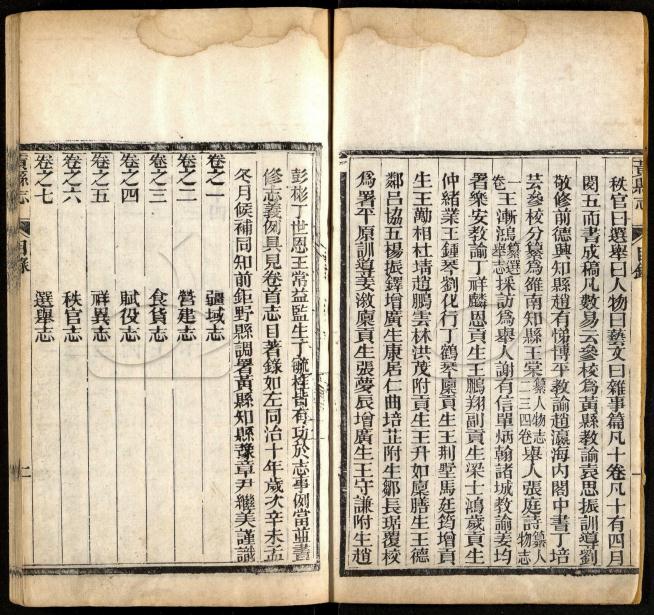 秩官曰選舉曰人物曰藝文曰雜事篇凡十卷凡十有四月
閱五而書成稿凡數易云參校爲黃縣教諭袁思振訓導劉
敬修前德興知縣趙有悌博平教諭趙瀛海內閣中書丁培
芸參校分纂爲雒南知縣王棠纂人物志一二三四卷舉人張庭詩纂人物志
卷一王漸鴻纂選舉志採訪爲舉人謝有信單炳翰諸城教諭姜均
署樂安教諭丁祥麟恩貢生王鵬翔副貢生梁士鴻歲貢生
仲緒業王鍾琴劉化行丁鶴琴廩貢生王荆墅馬廷筠增貢
生王勱相杜堉趙鵬雲林洪茂附貢生王升如廩膳生王德
鄰呂協五楊振鐸增廣生康居仁曲培芷附生鄒長琚覆校
爲署平原訓導姜漵廩貢生張夢辰增廣生王守謙附生趙
黃縣志 目錄
彭彬丁世恩王常益監生丁毓桂皆有功於志事例當並書
修志義例具見卷首志目著錄如左同治十年歲次辛未孟
冬月候補同知前鉅野縣調署黃縣知縣豫章尹繼美謹識
卷之一 疆域志
卷之二 營建志
卷之三 食貨志
卷之四 賦役志
卷之五 祥異志
卷之六 秩官志
卷之七 選舉志
黃縣志 目錄 二